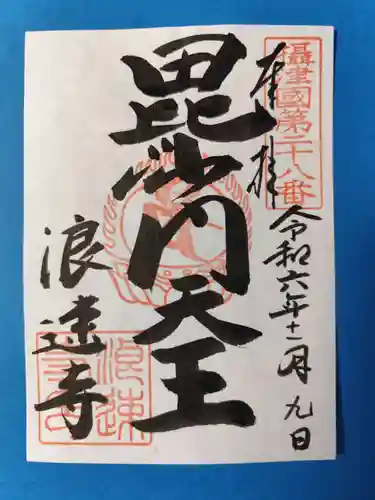 攝津國第二十八番
奉拝
令和六年十一月九日
毘沙門天王
浪速寺
浪速